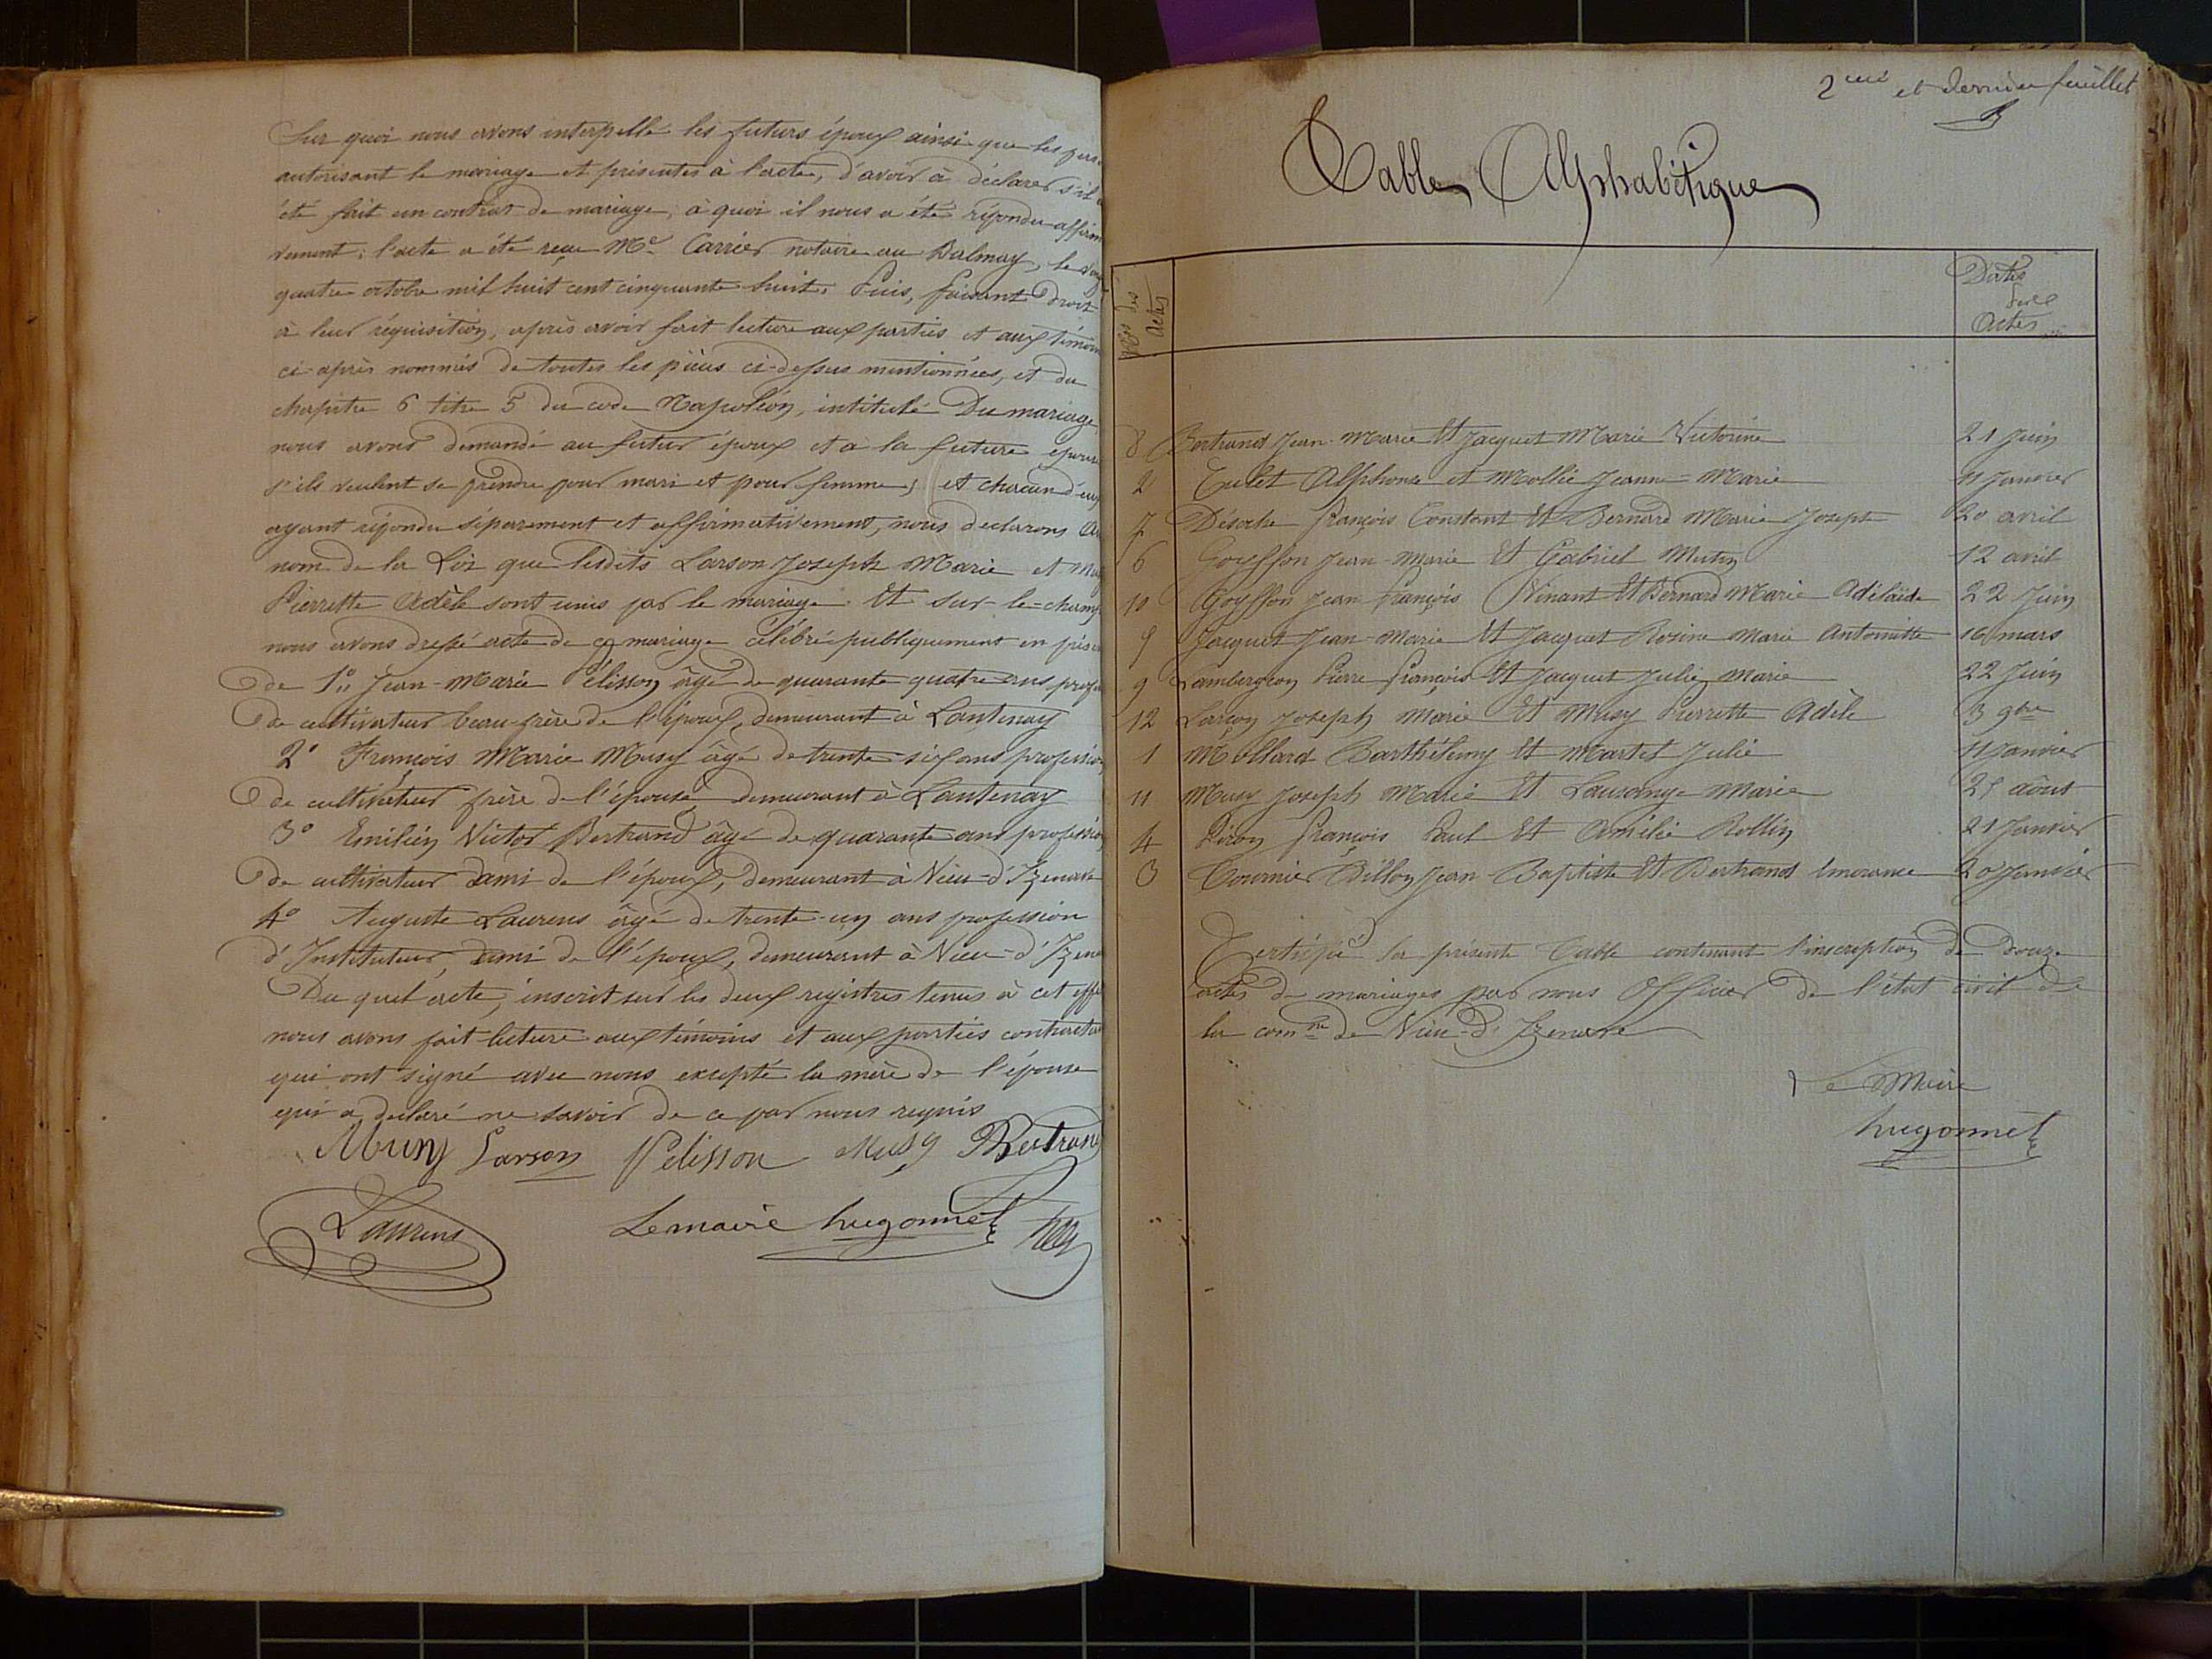 Sur quoi nous avons interpellé les futurs époux ainsi que les
autorisant le mariage et présentes à l'acte, d'avoir à déclarer s'il
été fait un contrat de mariage, à quoi il nous a été répondu affirm
vement; l'acte a été reçu Me Carrier notaire au Balmay, le
quatre octobre mil huit cent cinquante huit. Puis, faisant droit
à leur réquisition, après avoir fait lecture aux parties et aux témoins
ci-après nommés de toutes les pièces ci-dessus mentionnées, et du
chapitre 6 titre 5 du code Napoléon, intitulé Du mariage,
nous avons demandé au futur époux et à la future épouse
s'ils veulent se prendre pour mari et pour femme; et chacun d'eux
ayant répondu séparement et affirmativement, nous declarons au
nom de la Loi que lesdits Larson Joseph Marie et
Pierrette Adèle sont unis par le mariage. Et sur-le-champ
nous avons dressé acte de ce mariage célébré publiquement en
de 1° Jean-Marie Pélisson âgé de quarante quatre ans
de cultivateur beau-frère de l'époux, demeurant à Lantenay
2° François Marie Musy âgé de trente six ans profession
de cultivateur frère de l'épouse demeurant à Lantenay
3° Emilien Victor Bertrand âgé de quarante ans profession
de cultivateur ami de l'époux, demeurant à Vieu-d'Izenave
4° Auguste Laurens âgé de trente-un ans profession
d'Instituteur, ami de l'époux, demeurant à Vieu-d'Izena
Du quel acte, inscrit sur les deux registres tenus à cet effet
nous avons fait lecture aux témoins et aux parties contracta
qui ont signé avec nous excepté la mère de l'épouse
qui a declaré ne savoir de ce par nous requis
Musy Larson Pelisson Musy Bertrand
Laurens Le maire hugonnet
2me et dernier feuillet
Table Alphabétique
Nos des Actes
Dates des Actes
8 Bertrand Jean-Marie Et Jacquet Marie Victorine 21 Juin
2 Culet Alphonse et Mollie Jeanne-Marie 11 Janvier
7 François Constant Et Bernard Marie Joseph 20 avril
6 Goyffon Jean-Marie Et Gabriel 12 avril
10 Goyffon Jean François Et Bernard Marie Adélaïde 22 Juin
5 Jacquet Jean-Marie Et Jacquet Rosine Marie Antoinette 16 mars
9 Lambergeon Pierre François Et Jacquet Julie Marie 22 Juin
12 Larson Joseph Marie Et Musy Pierrette Adèle 3 9bre
1 Mollard Barthélemy Et Martet Julie 11 Janvier
11 Musy Joseph Marie Et Marie août
4 Piron François Paul Et Amélie Rollin 21 Janvier
3 Tournier Billon Jean-Baptiste Et Bertrand 20 Janvier
Certifié la présente Table contenant l'inscription de douze
actes de mariages par nous Officier de l'état civil de
la comne de Vieu-d'Izenave
Le Maire
hugonnet